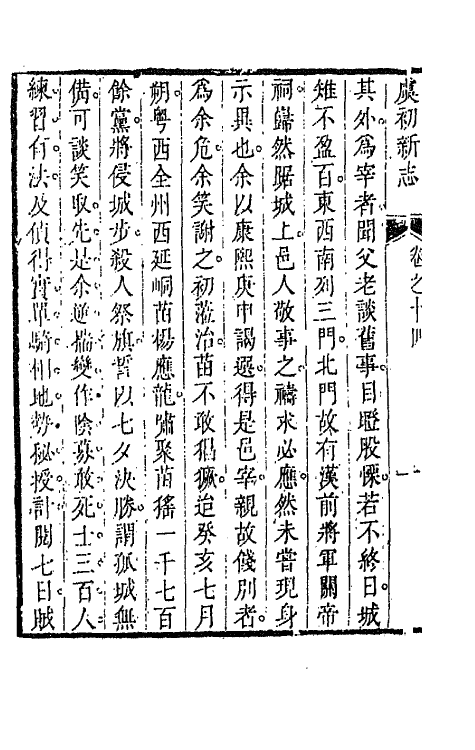 虞初新志
卷之十四
一
其外爲宰者聞父老談舊事目瞪股慄若不終日城
雉不盈百東西南列三門北門故有漢前將軍關帝
祠巋然踞城上邑人敬事之禱求必應然未嘗現身
示異也余以康熙庚申謁選得是邑宰親故餞別者
爲余危余笑謝之初蒞治苗不敢猖獗迨癸亥七月
朔粤西全州西延峒苗楊應龍嘯聚苗猺一千七百
餘黨將侵城步殺人祭旗誓以七夕決勝謂孤城無
備可談笑取先是余逆揣變作陰募敢死士三百人
練習有法及偵得實單騎相地勢秘授計閱七日賊